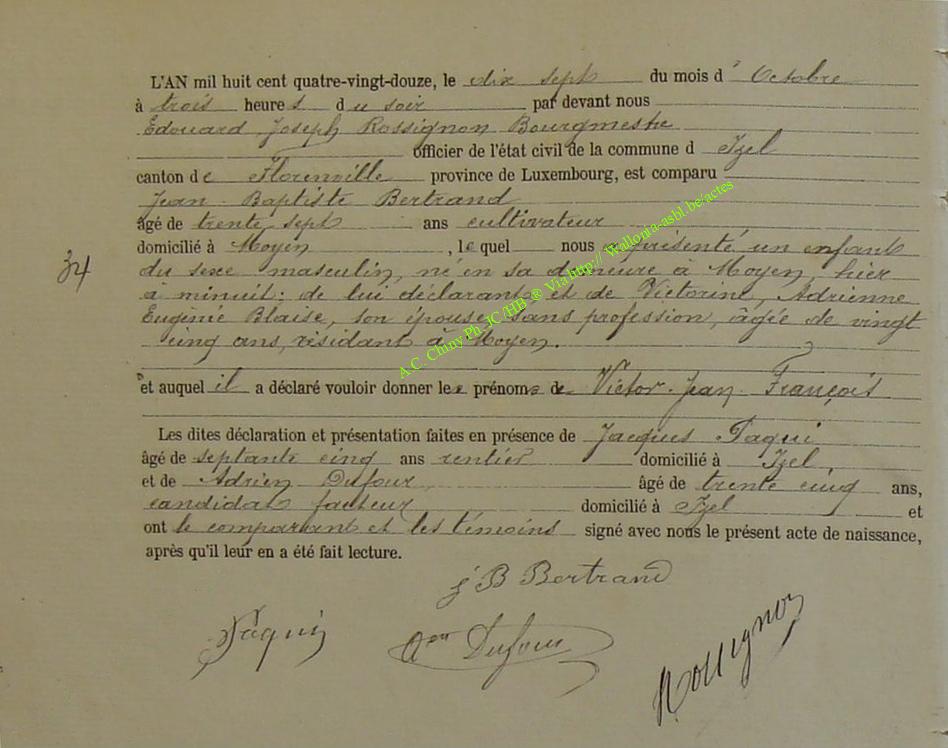 L'AN mil huit cent quatre-vingt-douze, le dix sept du mois d'Octobre
à trois heures du soir par devant nous
Edouard Joseph Rossignon Bourgmestre
officier de l'état civil de la commune d Izel
canton de Florenville province de Luxembourg, est comparu
Jean-Baptiste Bertrand
âgé de trente sept ans cultivateur
domicilié à Moyen, lequel nous a présenté un enfant
34
du sexe masculin, né en sa demeure à Moyen, hier
à minuit: de lui déclarant et de Victorine, Adrienne
Eugénie Blaise, son épouse, sans profession, âgée de vingt
cinq ans, résidant à Moyen.
et auquel il a déclaré vouloir donner les prénoms de Victor-Jean-François
Les dites déclaration et présentation faites en présence de Jacques Paqui
âgé de septante cinq ans rentier domicilié à Izel,
et de Adrien Dufour âgé de trente cinq ans,
candidat facteur domicilié à Izel et
ont le comparant et les témoins signé avec nous le présent acte de naissance,
après qu'il leur en a été fait lecture.
J B Bertrand
Paqui
Aen Dufour
Rossignon
A.C. Chiny Ph. JC/HB ® Via http:// Wallonia-asbl.be/actes